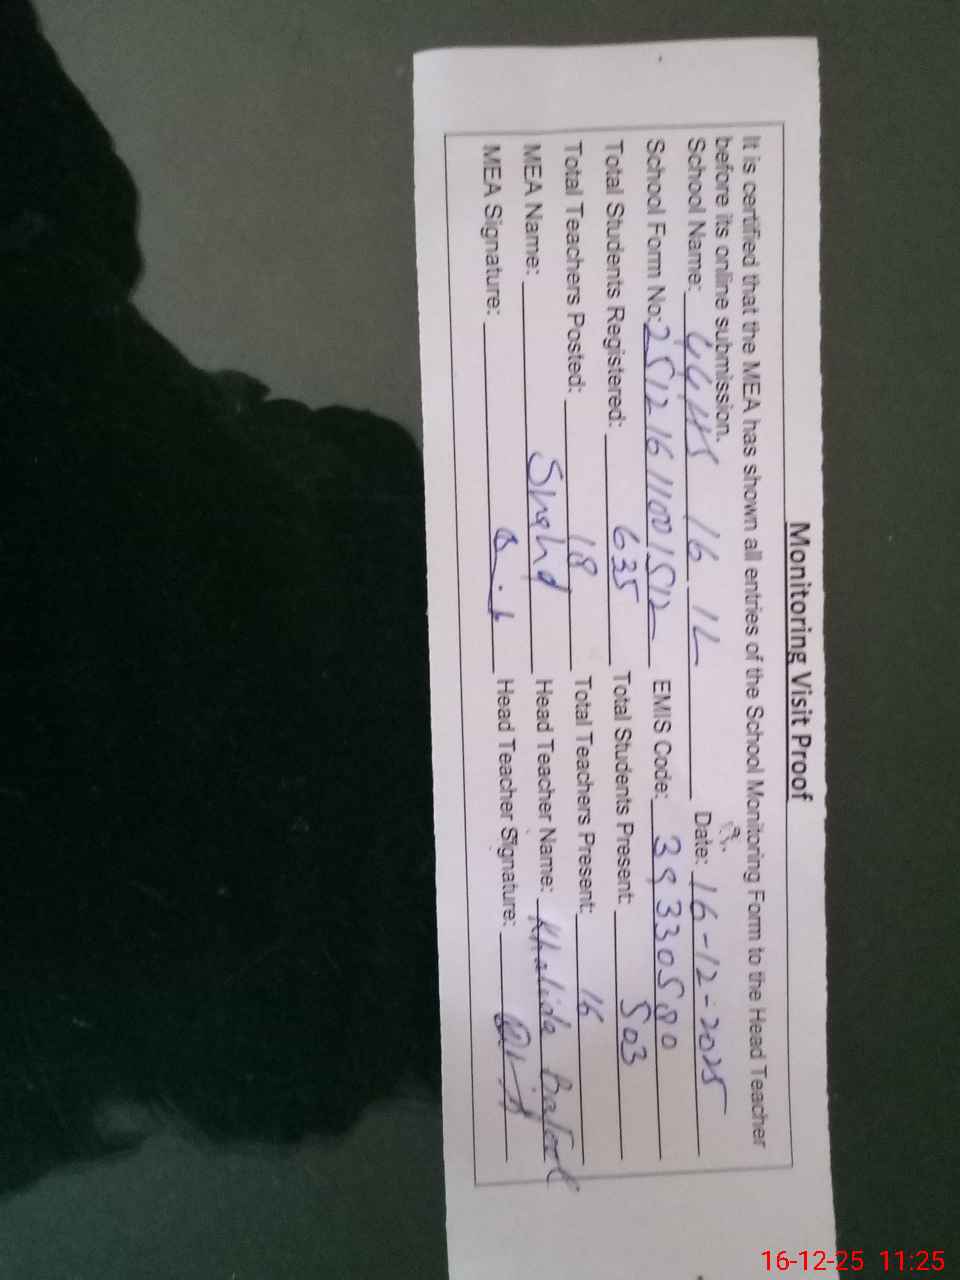 Monitoring Visit Proof
It is certified that the MEA has shown all entries of the School Monitoring Form to the Head Teacher
before its online submission.
School Name: 16 1L Date: 16-12-2025
School Form No: 25121611001512 EMIS Code: 39330580
Total Students Registered: 635 Total Students Present: 503
Total Teachers Posted: 18 Total Teachers Present: 16
MEA Name: Head Teacher Name: Khalida
MEA Signature: Head Teacher Signature:
16-12-25 11:25